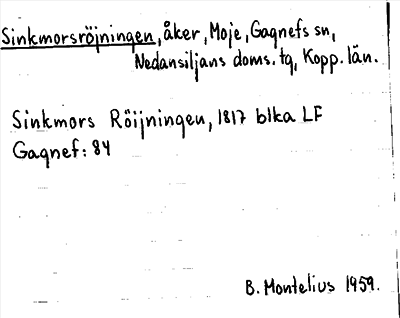 Sinkmorsröjningen, åker, Moje, Gagnefs sn,
Nedansiljans doms. tg, Kopp. län.
Sinkmors Röijningen, 1817 blka LF
Gagnef: 84
B. Montelius 1959.